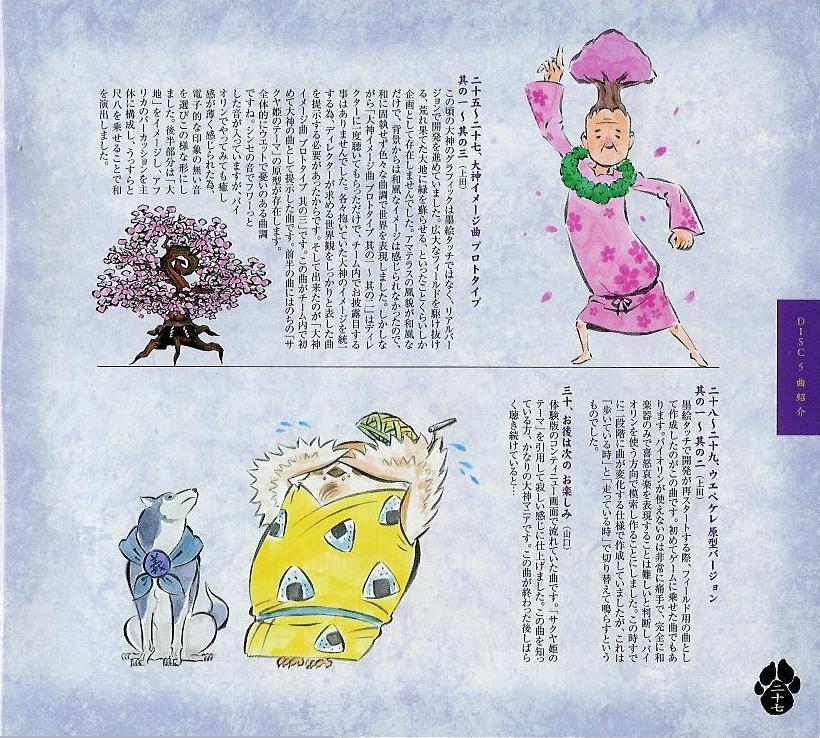 DISC 5 曲紹介
二十五〜二十七、大神イメージ曲 プロトタイプ
其の一 〜 其の三（上田）
この頃の大神のグラフィックは墨絵タッチではなく、リアルバー
ジョンで開発を進めていました。広大なフィールドを駆け抜け
る、荒れ果てた大地に緑を蘇らせる、といったことくらいしか
企画として存在しませんでした。アマテラスの風貌が和風な
だけで、背景からは和風なイメージは感じられなかったので、
和に固執せず色々な曲調で世界を表現しました。しかしな
がら「大神イメージ曲 プロトタイプ 其の一 〜 其の二」はディレ
クターに一度聴いてもらっただけで、チーム内でお披露目する
事はありませんでした。各々抱いていた大神のイメージを統一
する為、ディレクターが求める世界観をしっかりと表した曲
を提示する必要があったからです。そして出来たのが「大神
イメージ曲 プロトタイプ 其の三」です。この曲がチーム内で初
めて大神の曲として提示した曲です。前半の曲にはのちの「サ
クヤ姫のテーマ」の原型が存在します。
全体的にウエットで憂いのある曲調
ですね。シンセの音でフワーっと
した音が入っていますが、バイ
オリンでやってみても癒し
感が薄く感じられた為、
電子的な印象の無い音
を選びこの様な形にし
ました。後半部分は「大
地」をイメージし、アフ
リカのパーカッションを主
体に構成し、うっすらと
尺八を乗せることで和
を演出しました。
二十八〜二十九、ウエペケレ原型バージョン
其の一 〜 其の二（上田）
墨絵タッチで開発が再スタートする際、フィールド用の曲とし
て作成したのがこの曲です。初めてゲームに乗せた曲でもあ
ります。バイオリンが使えないのは非常に痛手で、完全に和
楽器のみで喜怒哀楽を表現することは難しいと判断し、バイ
オリンを使う方向で模索し作ることにしました。この時すで
に二段階に曲が変化する仕様で作成していましたが、これは
「歩いている時」と「走っている時」で切り替えて鳴らすという
ものでした。
三十、お後は次の お楽しみ（山口）
体験版のコンティニュー画面で流れていた曲です。「サクヤ姫の
テーマ」を引用して寂しい感じに仕上げました。この曲を知っ
ている方、かなりの大神マニアです。この曲が終わった後しばら
く聴き続けていると…
二十七